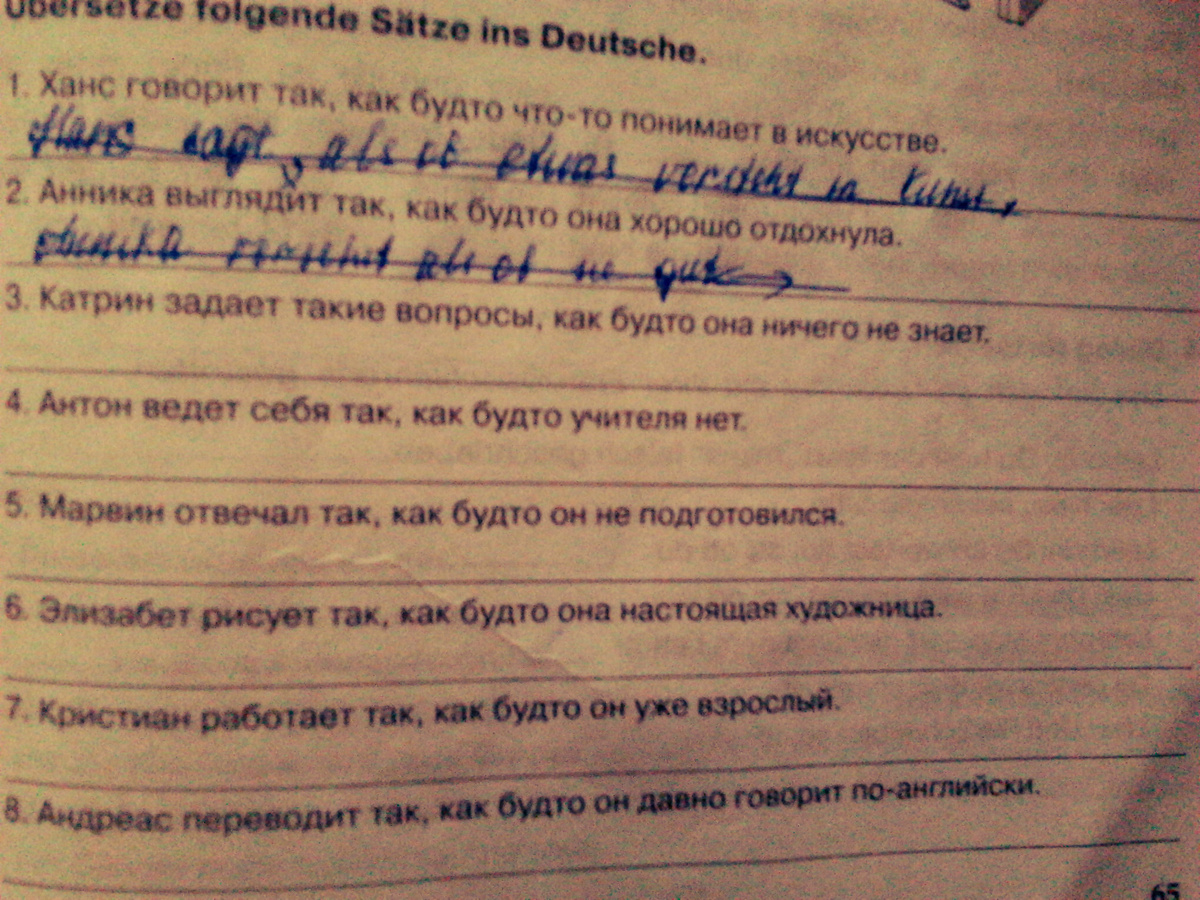 Übersetze folgende Sätze ins Deutsche.
1. Ханс говорит так, как будто что-то понимает в искусстве.
Hans sagt, als ob etwas versteht in Kunst,
2. Анника выглядит так, как будто она хорошо отдохнула.
als ob gut
3. Катрин задает такие вопросы, как будто она ничего не знает.
4. Антон ведет себя так, как будто учителя нет.
5. Марвин отвечал так, как будто он не подготовился.
6. Элизабет рисует так, как будто она настоящая художница.
7. Кристиан работает так, как будто он уже взрослый.
8. Андреас переводит так, как будто он давно говорит по-английски.
65